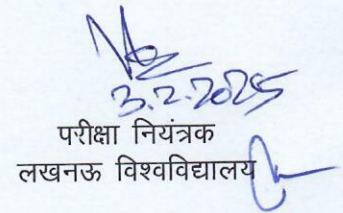 3.2.2025
परीक्षा नियंत्रक
लखनऊ विश्वविद्यालय